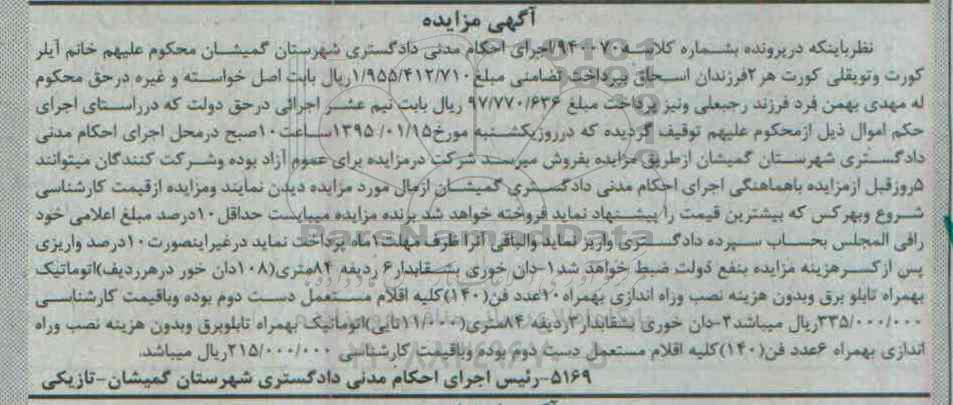 آگهی مزایده
نظرباینکه درپرونده بشماره کلاسه ۹۴۰۰۷۰/اجرای احکام مدنی دادگستری شهرستان گمیشان محکوم علیهم خانم آیلر
کورت وتویقلی کورت هر ۲فرزندان اسحاق بپرداخت تضامنی مبلغ ۱/۹۵۵/۴۱۲/۷۱۰ریال بابت اصل خواسته و غیره درحق محکوم
له مهدی بهمن فرد فرزند رجبعلی ونیز پرداخت مبلغ ۹۷/۷۷۰/۶۳۶ ریال بابت نیم عشر اجرائی درحق دولت که درراستای اجرای
حکم اموال ذیل ازمحکوم علیهم توقیف گردیده که درروزیکشنبه مورخ۱۳۹۵/۰۱/۱۵ساعت۱۰صبح درمحل اجرای احکام مدنی
دادگستری شهرستان گمیشان ازطریق مزایده بفروش میرسد شرکت درمزایده برای عموم آزاد بوده وشرکت کنندگان میتوانند
۵روزقبل ازمزایده باهماهنگی اجرای احکام مدنی دادگستری گمیشان ازمال مورد مزایده دیدن نمایند ومزایده ازقیمت کارشناسی
شروع وبهرکس که بیشترین قیمت را پیشنهاد نماید فروخته خواهد شد برنده مزایده میبایست حداقل ۱۰درصد مبلغ اعلامی خود
رافی المجلس بحساب سپرده دادگستری واریز نماید والباقی آنرا ظرف مهلت۱ماه پرداخت نماید درغیراینصورت ۱۰درصد واریزی
پس ازکسرهزینه مزایده بنفع دولت ضبط خواهد شد۱-دان خوری بشقابدار۶ ردیفه ۸۴متری(۱۰۸دان خور درهرردیف)اتوماتیک
بهمراه تابلو برق وبدون هزینه نصب وراه اندازی بهمراه ۱۰عدد فن(۱۴۰)کلیه اقلام مستعمل دست دوم بوده وباقیمت کارشناسی
۳۳۵/۰۰۰/۰۰۰ریال میباشد۲-دان خوری بشقابدار۳ردیفه ۸۴متری(۱۱/۰۰۰تایی)اتوماتیک بهمراه تابلوبرق وبدون هزینه نصب وراه
اندازی بهمراه ۶عدد فن(۱۴۰)کلیه اقلام مستعمل دست دوم بوده وباقیمت کارشناسی ۲۱۵/۰۰۰/۰۰۰ریال میباشد.
۵۱۶۹-رئیس اجرای احکام مدنی دادگستری شهرستان گمیشان-تازیکی
ParsNamadData